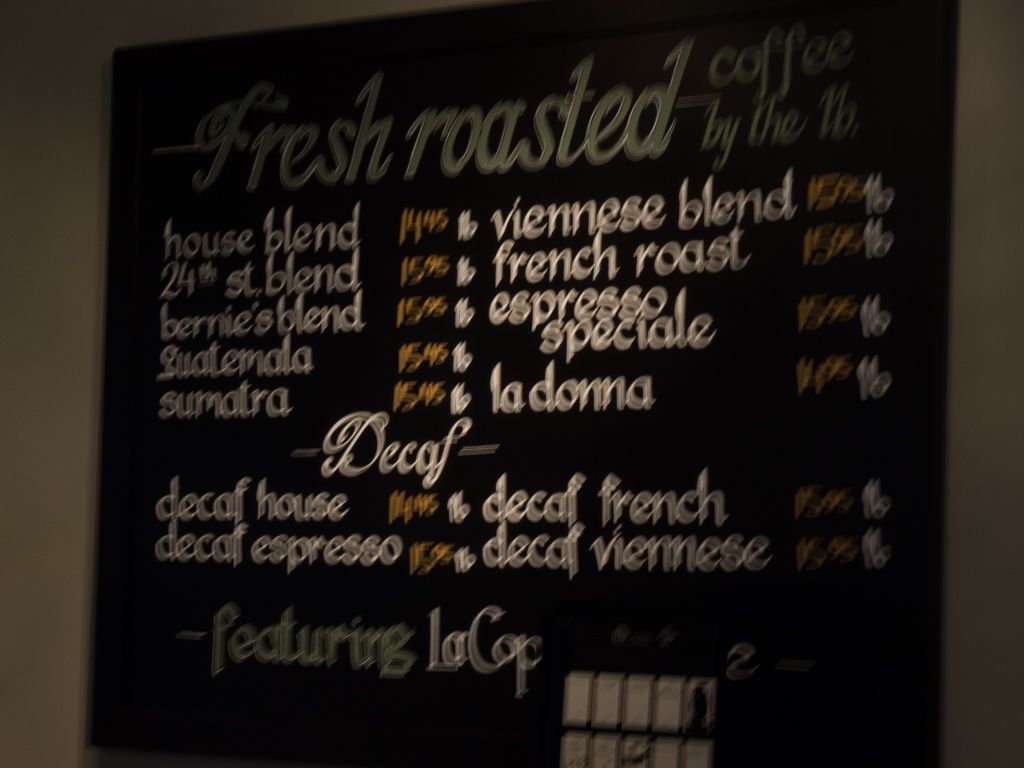 Fresh roasted coffee by the lb.
house blend 14.45 lb
24th st. blend 15.95 lb
bernie's blend 15.95 lb
guatemala 15.45 lb
sumatra 15.45 lb
viennese blend 15.95 lb
french roast 15.95 lb
espresso
speciale 15.95 lb
la donna 14.95 lb
- Decaf -
decaf house 14.45 lb
decaf espresso 15.95 lb
decaf french 15.95 lb
decaf viennese 15.95 lb
- featuring LaCop e -